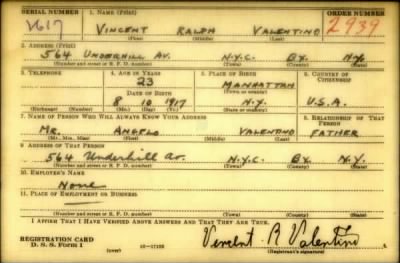 SERIAL NUMBER 1. NAME (Print) ORDER NUMBER
V617 VINCENT RALPH VALENTINO 2939
(First) (Middle) (Last)
2. ADDRESS (Print)
564 UNDERHILL AV. N.Y.C. BX. N.Y.
(Number and street or R. F. D. number) (Town) (County) (State)
3. TELEPHONE 4. AGE IN YEARS 5. PLACE OF BIRTH 6. COUNTRY OF CITIZENSHIP
23 MANHATTAN
DATE OF BIRTH (Town or county)
8 10 1917 N.Y. U.S.A.
(Exchange) (Number) (Mo.) (Day) (Yr.) (State or country)
7. NAME OF PERSON WHO WILL ALWAYS KNOW YOUR ADDRESS 8. RELATIONSHIP OF THAT PERSON
MR. ANGELO VALENTINO FATHER
(Mr., Mrs., Miss) (First) (Middle) (Last)
9. ADDRESS OF THAT PERSON
564 Underhill Av. N.Y.C. BX. N.Y.
(Number and street or R. F. D. number) (Town) (County) (State)
10. EMPLOYER'S NAME
None
11. PLACE OF EMPLOYMENT OR BUSINESS
(Number and street or R. F. D. number) (Town) (County) (State)
I AFFIRM THAT I HAVE VERIFIED ABOVE ANSWERS AND THAT THEY ARE TRUE.
REGISTRATION CARD
D. S. S. Form 1 (over) 16-17105 Vincent R Valentino
(Registrant's signature)